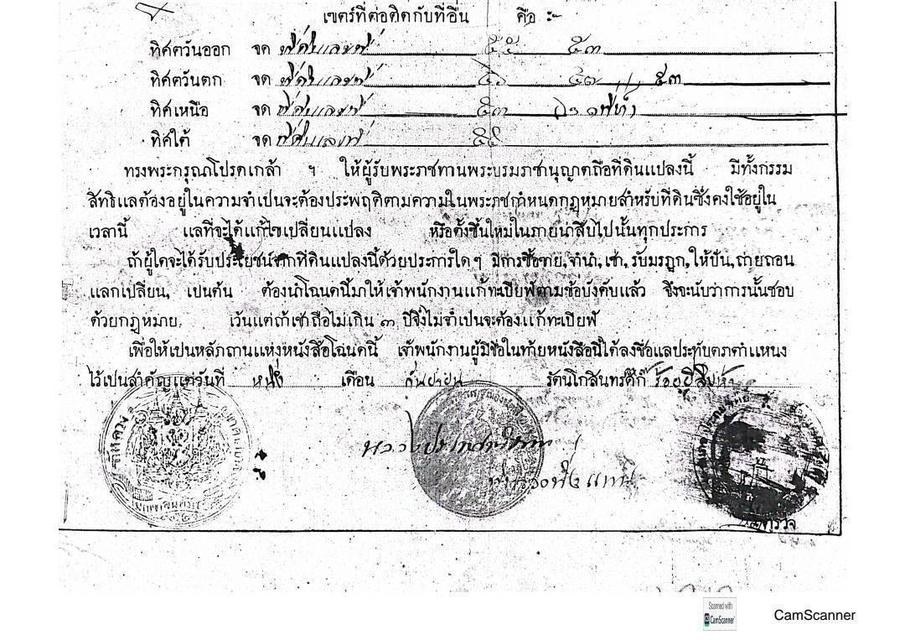 เขตร์ที่ต่อติดกับที่อื่น คือ ะ-
ทิศตวันออก จด ที่ดินเลขที่ ๕๕ ๕๓
ทิศตวันตก จด ที่ดินเลขที่ ๕๓
ทิศเหนือ จด ที่ดินเลขที่ ๕๓
ทิศใต้ จด ที่ดินเลขที่ ๕๕
ทรงพระกรุณโปรดเกล้า ฯ ให้ผู้รับพระราชทานพระบรมราชานุญาตถือที่ดินแปลงนี้ มีทั้งกรรม
สิทธิแลต้องอยู่ในความจำเปนจะต้องประพฤติตามความในพระราชกำหนดกฎหมายสำหรับที่ดินซึ่งคงใช้อยู่ใน
เวลานี้ แลที่จะได้แก้ไขเปลี่ยนแปลง หรือตั้งขึ้นใหม่ในภายน่าสืบไปนั้นทุกประการ
ถ้าผู้ใดจะได้รับประโยชน์จากที่ดินแปลงนี้ด้วยประการใดๆ มีการซื้อขาย, จำนำ, เช่า, รับมรฎก, ให้ปัน, ถ่ายถอน
แลกเปลี่ยน, เปนต้น ต้องนำโฉนดนี้มาให้เจ้าพนักงานแก้ทะเบียฬตามข้อบังคับแล้ว จึงจะนับว่าการนั้นชอบ
ด้วยกฎหมาย. เว้นแต่ถ้าเช่าถือไม่เกิน ๓ ปีจึ่งไม่จำเปนจะต้องแก้ทะเบียฬ
เพื่อให้เปนหลักถานแห่งหนังสือโฉนดนี้ เจ้าพนักงานผู้มีชื่อในท้ายหนังสือนี้ได้ลงชื่อแลประทับตราตำแหนง
ไว้เปนสำคัญแต่วันที่ หนึ่ง เดือน กันยายน รัตนโกสินทรศก๊ ร้อยยี่สิบห้า
แทน
Scanned with
CamScanner
CamScanner